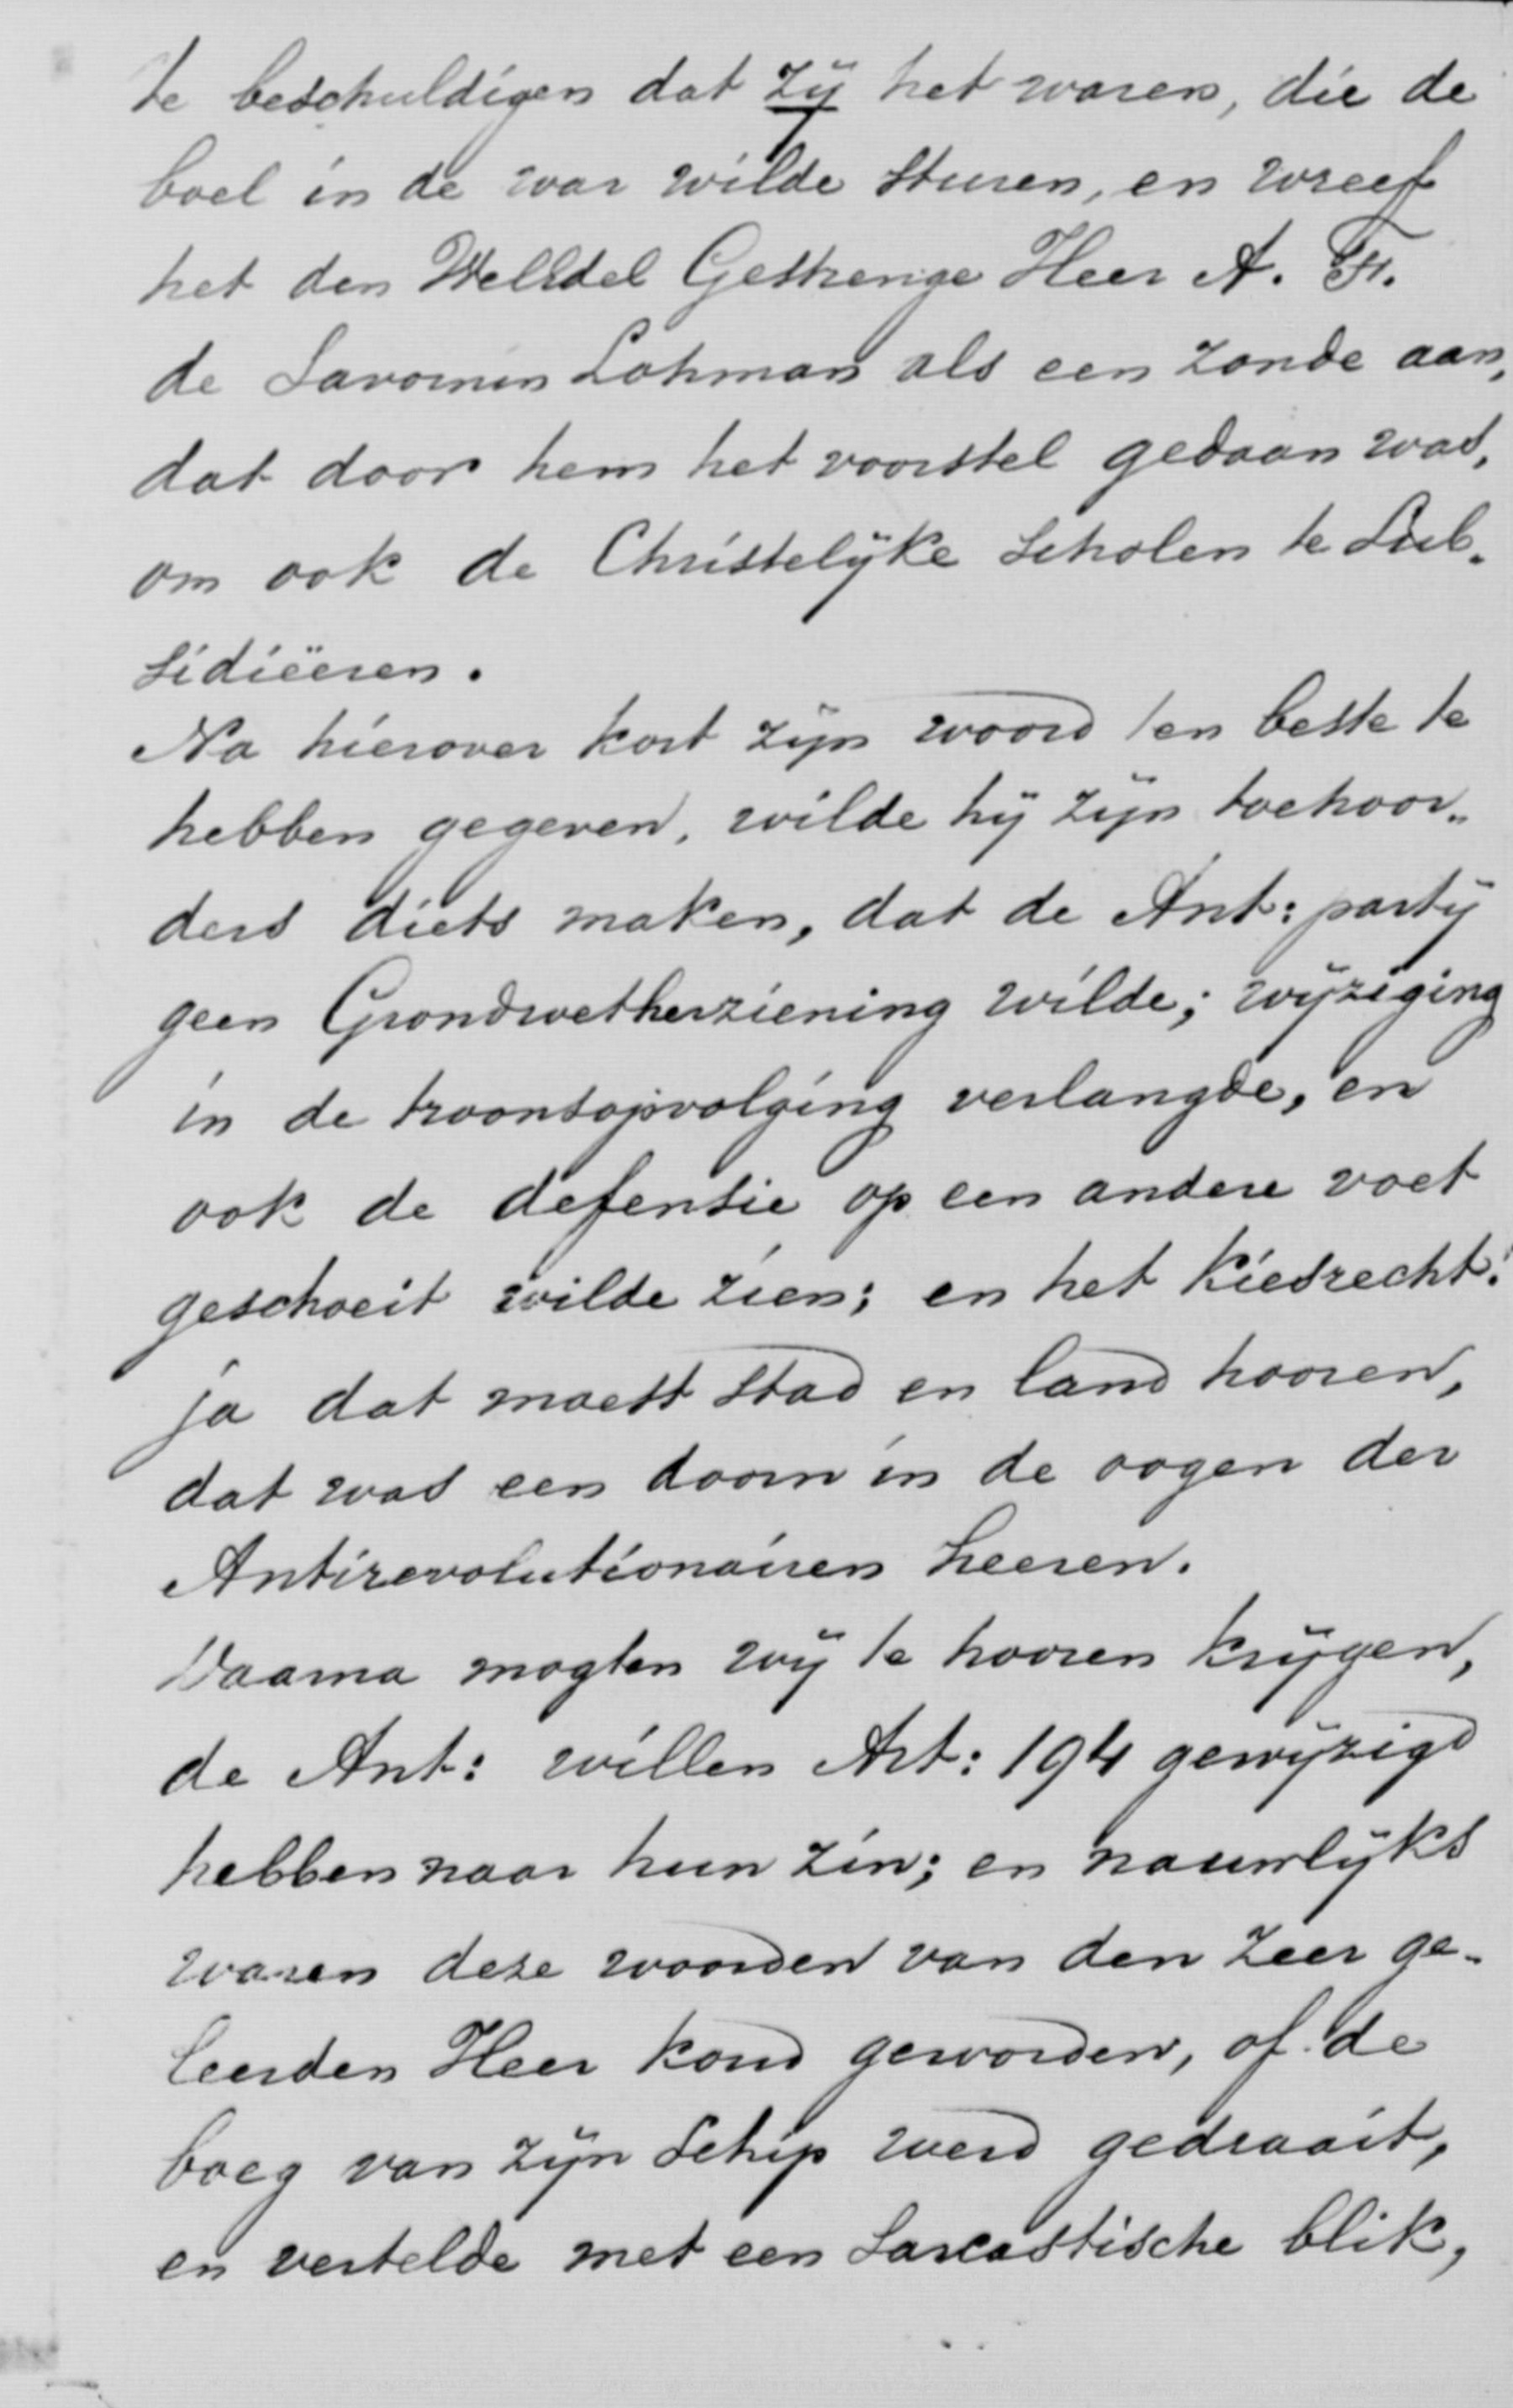 te beschuldigen dat zij het waren, die de
boel in de war wilde sturen, en wreef
het den WelEdel Gestrenge Heer A. F.
de Savornin Lohman als een zonde aan,
dat door hem het voorstel gedaan was,
om ook de Christelijke scholen te Sub-
sidiëeren.
Na hierover kort zijn woord ten beste te
hebben gegeven, wilde hij zijn toehoor„
ders diets maken, dat de Ant: partij
geen Grondwetherziening wilde; wijziging
in de troonsopvolging verlangde, en
ook de defensie op een andere voet
geschoeit wilde zien; en het Kiesrecht!
ja dat moest stad en land hooren,
dat was een doorn in de oogen der
Antirevolutionairen heeren.
Daarna mogten wij te hooren krijgen,
de Ant: willen Art: 194 gewijzigd
hebben naar hun zin; en nauwlijks
waren deze woorden van den zeer ge-
leerden Heer koud geworden, of de
boeg van zijn schip werd gedraait,
en vertelde met een sarcastische blik,